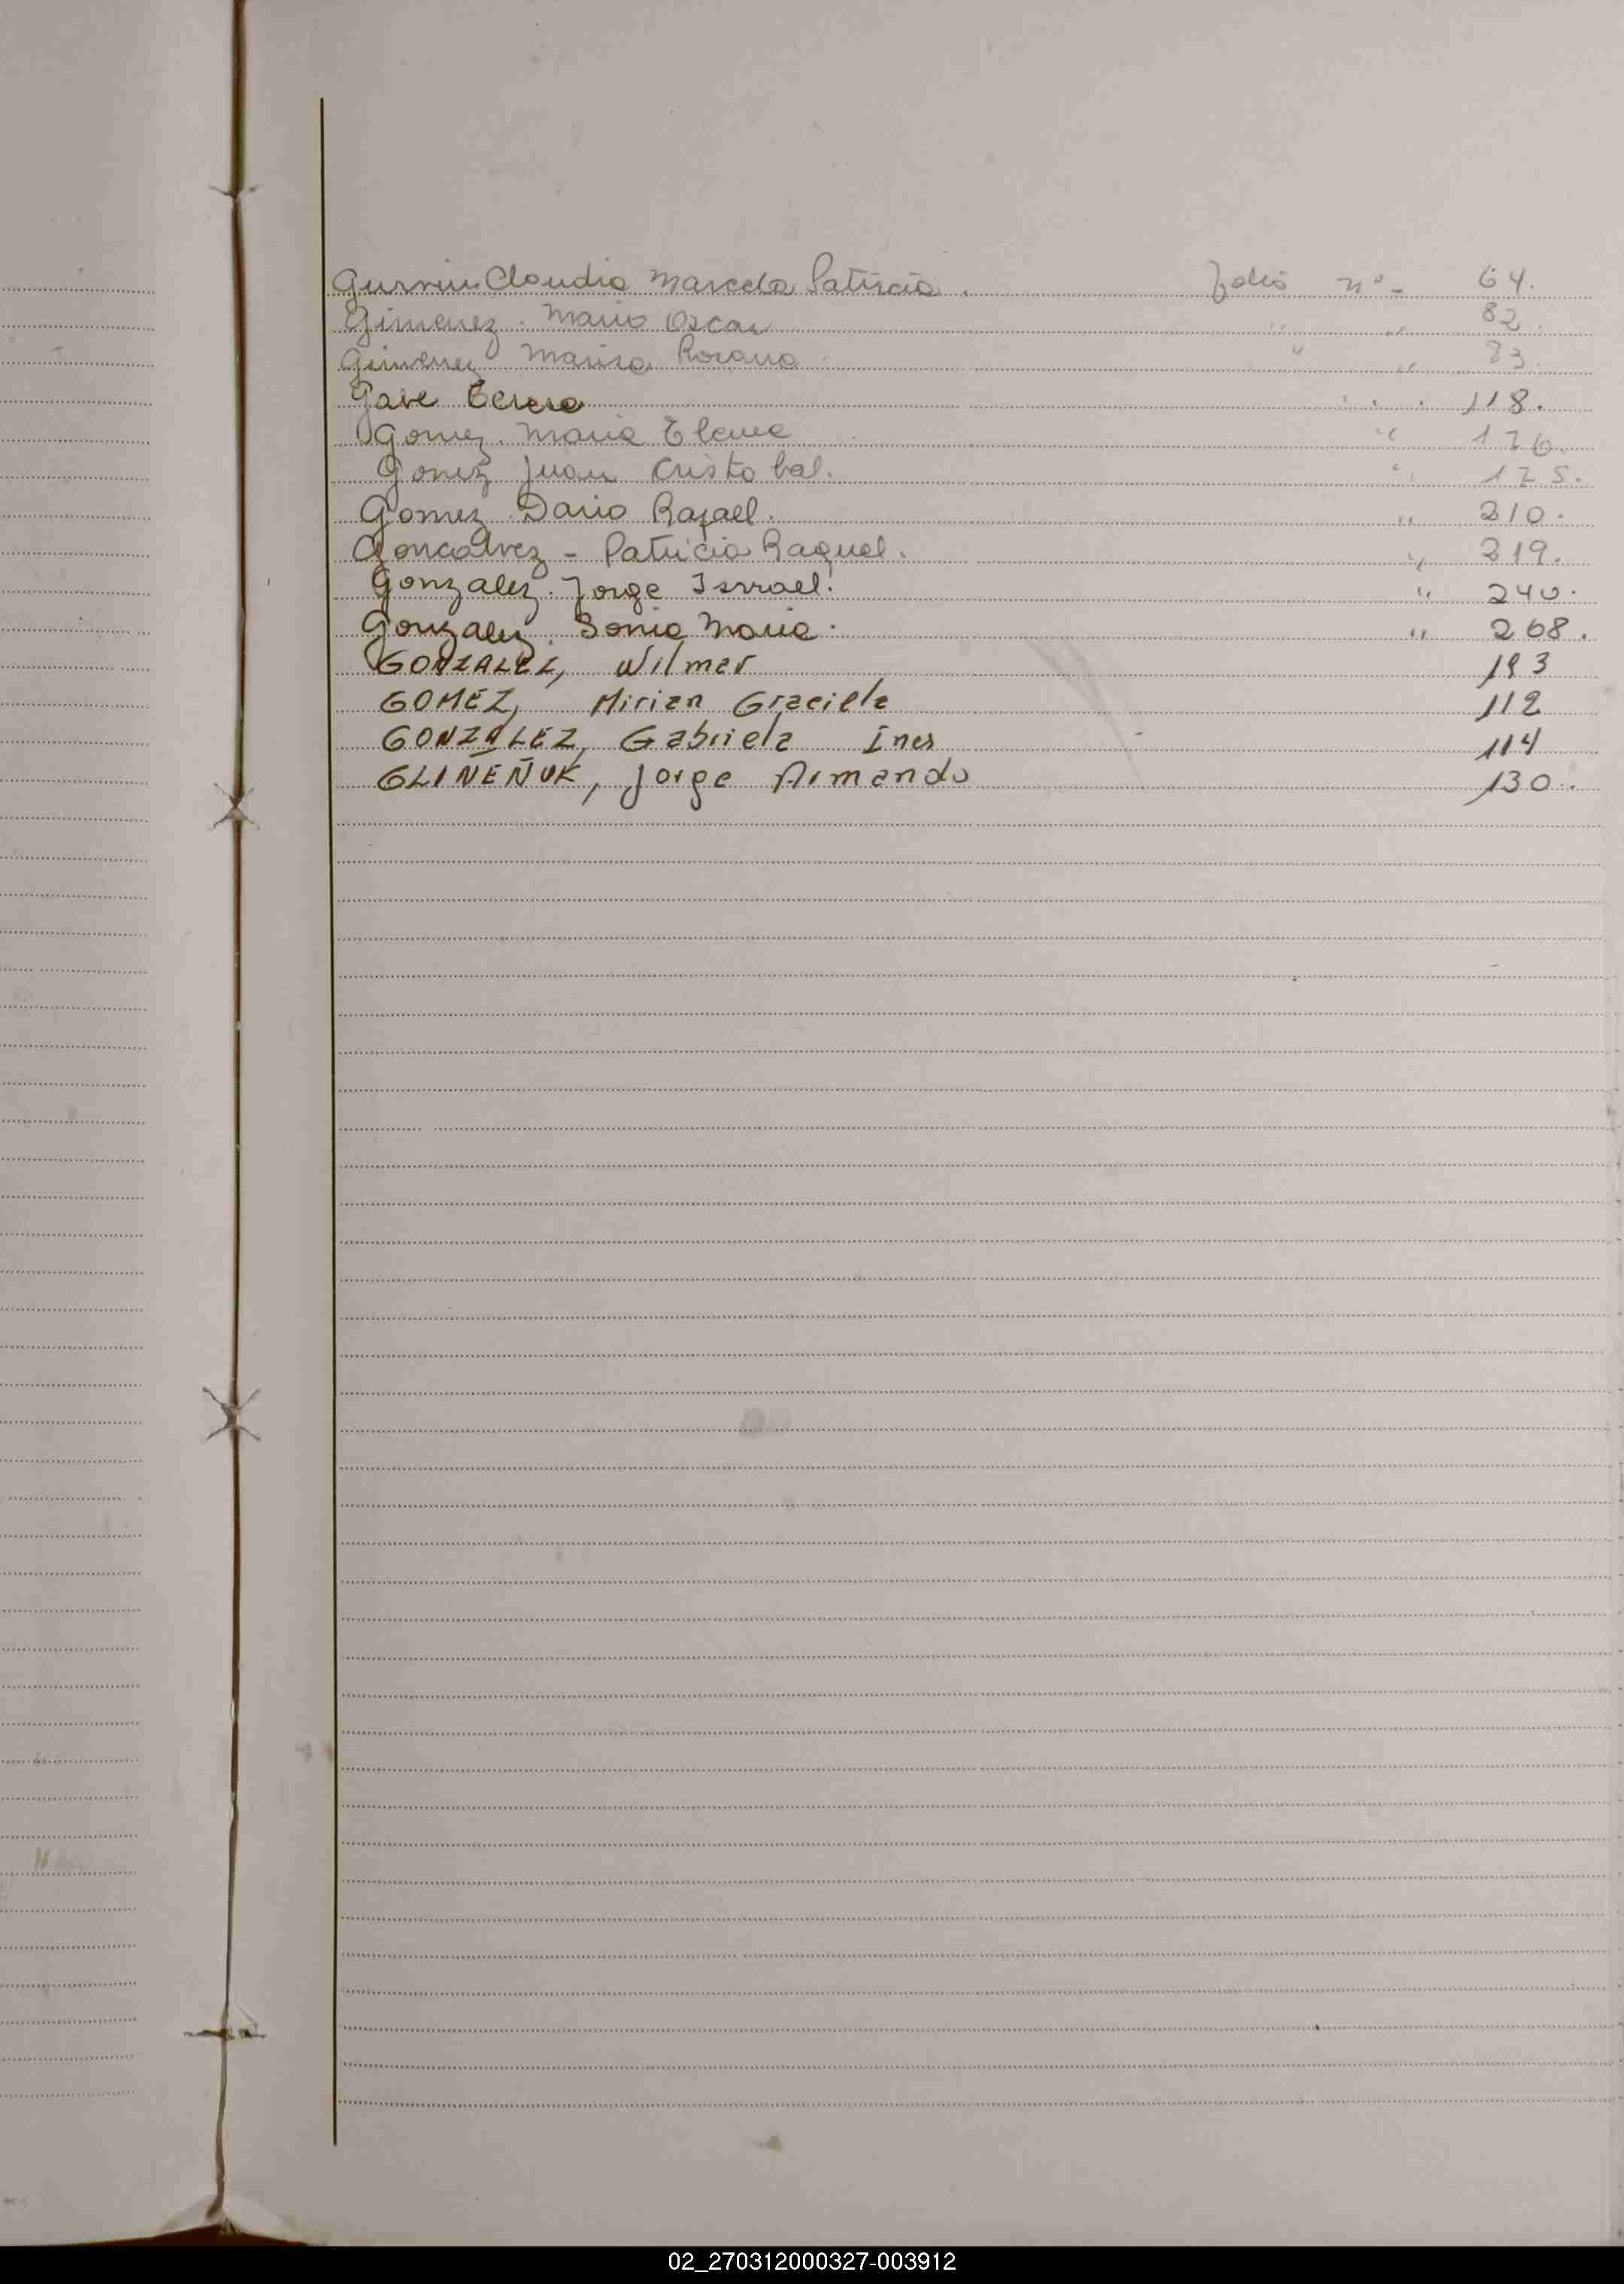 Claudia Marcela Patricia. folio nº- 64.
Gimenez. Mario Oscar " " 82.
Gimenez Marisa Rosana. " " 83.
118.
Gomez. Maria Elena " 176.
Gomez Juan Cristobal. " 175.
Gomez Dario Rafael. " 210.
Goncalvez - Patricia Raquel. " 219.
Gonzalez. Jorge Isrrael. " 240.
Gonzalez. Sonia Maria. " 268.
GONZALEZ, Wilmer 193
GOMEZ, Mirian Graciela 112
GONZALEZ, Gabriela Ines 114
GLIÑEÑUK, Jorge Armando 130.
02_270312000327-003912